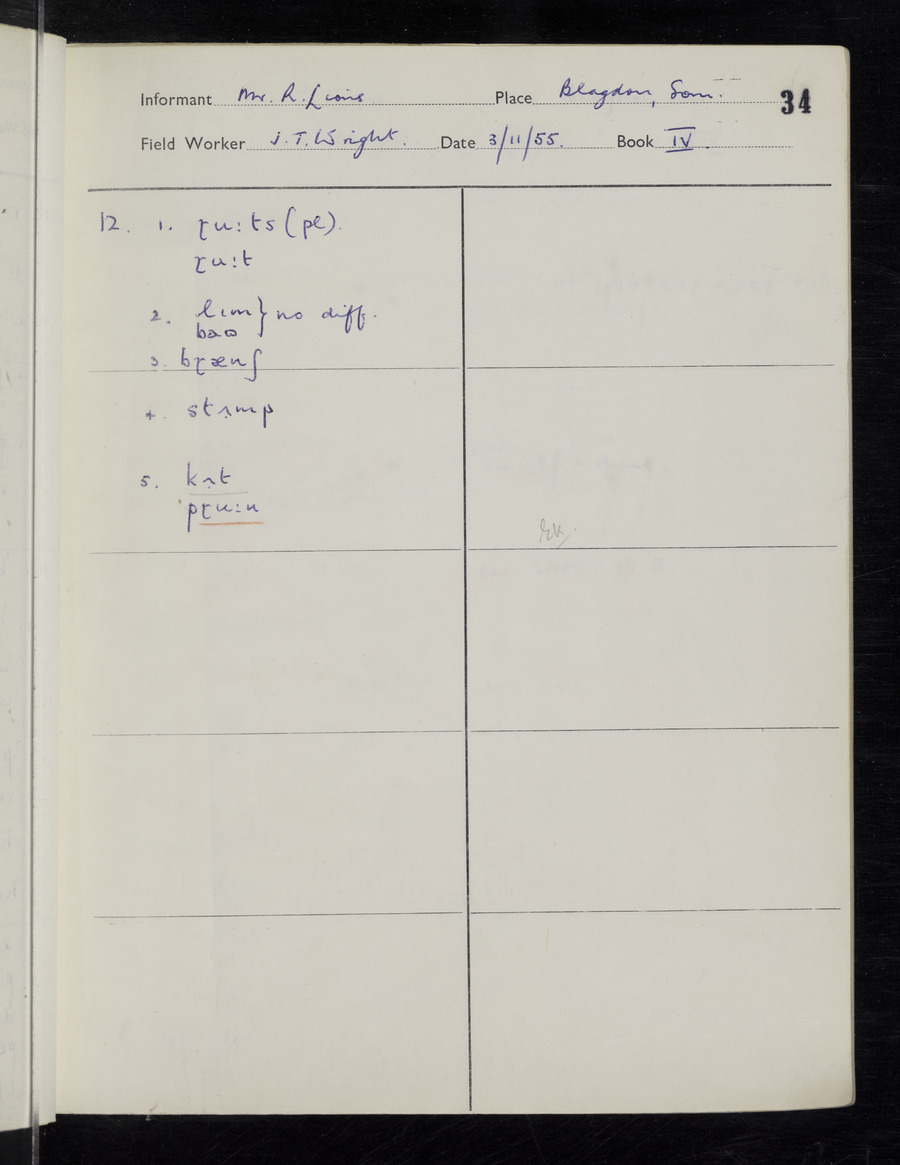 Informant Mr. R. Lions Place Blagdon, Som. 34
Field Worker J. T. Wright. Date 3/11/55. Book IV.
12. 1. ɽu:ts (pl).
ɽu:t
2. lɪm } no diff.
baɷ
3. bɽænʃ
4. stʌmp
5. kʌt
pɽu:n